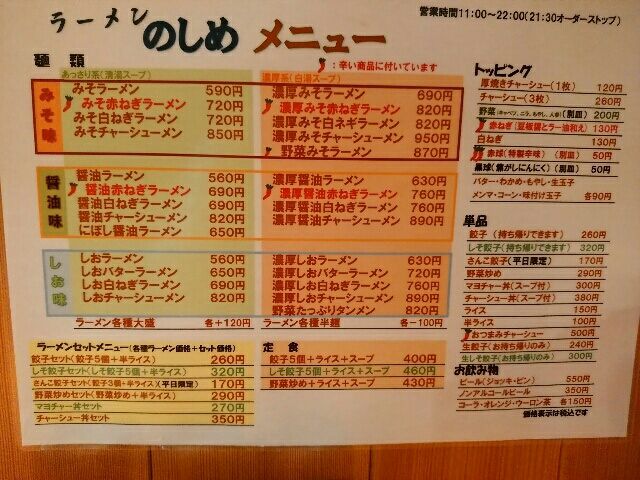 ラーメン のしめ メニュー
営業時間11:00～22:00(21:30オーダーストップ)
：辛い商品に付いています
麺 類
あっさり系(清湯スープ)
みそ味
みそラーメン 590円
みそ赤ねぎラーメン 720円
みそ白ねぎラーメン 720円
みそチャーシューメン 850円
濃厚系(白湯スープ)
濃厚みそラーメン 690円
濃厚みそ赤ねぎラーメン 820円
濃厚みそ白ネギラーメン 820円
濃厚みそチャーシューメン 950円
野菜みそラーメン 870円
醤油味
醤油ラーメン 560円
醤油赤ねぎラーメン 690円
醤油白ねぎラーメン 690円
醤油チャーシューメン 820円
にぼし醤油ラーメン 650円
濃厚醤油ラーメン 630円
濃厚醤油赤ねぎラーメン 760円
濃厚醤油白ねぎラーメン 760円
濃厚醤油チャーシューメン 890円
しお味
しおラーメン 560円
しおバターラーメン 650円
しお白ねぎラーメン 690円
しおチャーシューメン 820円
濃厚しおラーメン 630円
濃厚しおバターラーメン 720円
濃厚しお白ねぎラーメン 760円
濃厚しおチャーシューメン 890円
野菜たっぷりタンメン 820円
ラーメン各種大盛 各+120円
ラーメン各種半麺 各－100円
ラーメンセットメニュー(各種ラーメン価格+セット価格)
餃子セット(餃子5個+半ライス) 260円
しそ餃子セット(しそ餃子5個+半ライス) 320円
さんこ餃子セット(餃子3個+半ライス)(平日限定) 170円
野菜炒めセット(野菜炒め+半ライス) 290円
マヨチャー丼セット 270円
チャーシュー丼セット 350円
定 食
餃子5個+ライス+スープ 400円
しそ餃子5個+ライス+スープ 460円
野菜炒め+ライス+スープ 430円
トッピング
厚焼きチャーシュー(1枚) 120円
チャーシュー(3枚) 260円
野菜(キャベツ、ニラ、もやし、人参)(別皿) 200円
赤ねぎ(豆板醤とラー油和え) 130円
白ねぎ 130円
赤球(特製辛味)(別皿) 50円
黒球(焦がしにんにく)(別皿) 50円
バター・わかめ・もやし・生玉子
メンマ・コーン・味付け玉子 各90円
単品
餃子(持ち帰りできます) 260円
しそ餃子(持ち帰りできます) 320円
さんこ餃子(平日限定) 170円
野菜炒め 290円
マヨチャー丼(スープ付) 300円
チャーシュー丼(スープ付) 380円
ライス 150円
半ライス 100円
おつまみチャーシュー 500円
生餃子(お持ち帰りのみ) 240円
生しそ餃子(お持ち帰りのみ) 300円
お飲み物
ビール(ジョッキ・ビン) 550円
ノンアルコールビール 350円
コーラ・オレンジ・ウーロン茶 各150円
価格表示は税込です